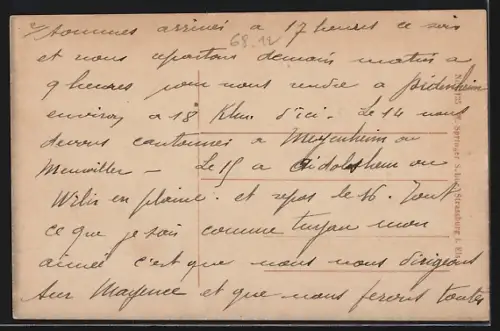 2/ sommes arrivés a 17 heures ce soir
68.12
et nous repartons demain matin a
9 heures pour nous rendre a
environ a 18 Klm d'ici. Le 14 nous
devons cantonner a Meyenheim ou
Le 15 a ou
en plaine. et repos le 16. Tout
ce que je sais comme tuyau mon
aimée c'est que nous nous dirigeons
sur Mayence et que nous ferons toutes
Springer Strassburg i. Els.